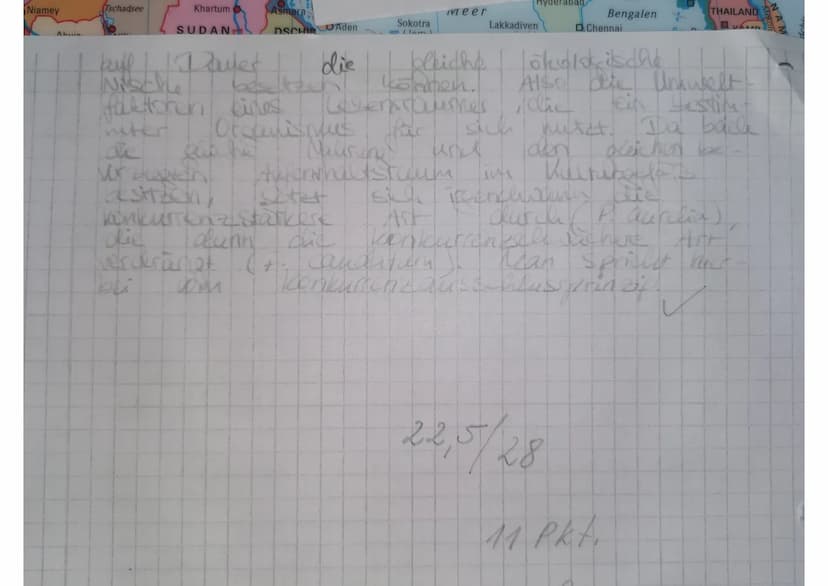 Niamey Tschadsee Khartum Asmara Aden Sokotra Meer Lakkadiven Hyderabad Bengalen Chennai THAILAND
SUDAN DSCHI
auf Dauer die gleiche ökologische
Nische besetzen können. Also die Umwelt-
faktoren eines Lebensraumes, die ein bestim-
mter Organismus für sich nutzt. Da beide
die gleiche Nahrung und den gleichen be-
Aufenthaltsraum im Kulturgefäß
besitzen, setzt sich die
konkurrenzstärkere Art durch (P. aurelia),
die dann die konkurrenzschwächere Art
verdrängt (P. caudatum). Man spricht hier-
bei vom Konkurrenzausschlussprinzip.
22,5/28
11 Pkt.